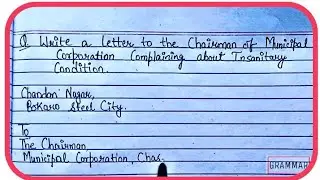 Q Write a letter to the Chairman of Municipal
Corporation Complaining about Insanitary
Condition.
Chandan Nagar,
Bokaro Steel City.
To
The Chairman,
Municipal Corporation, Chas.
GRAMMAR